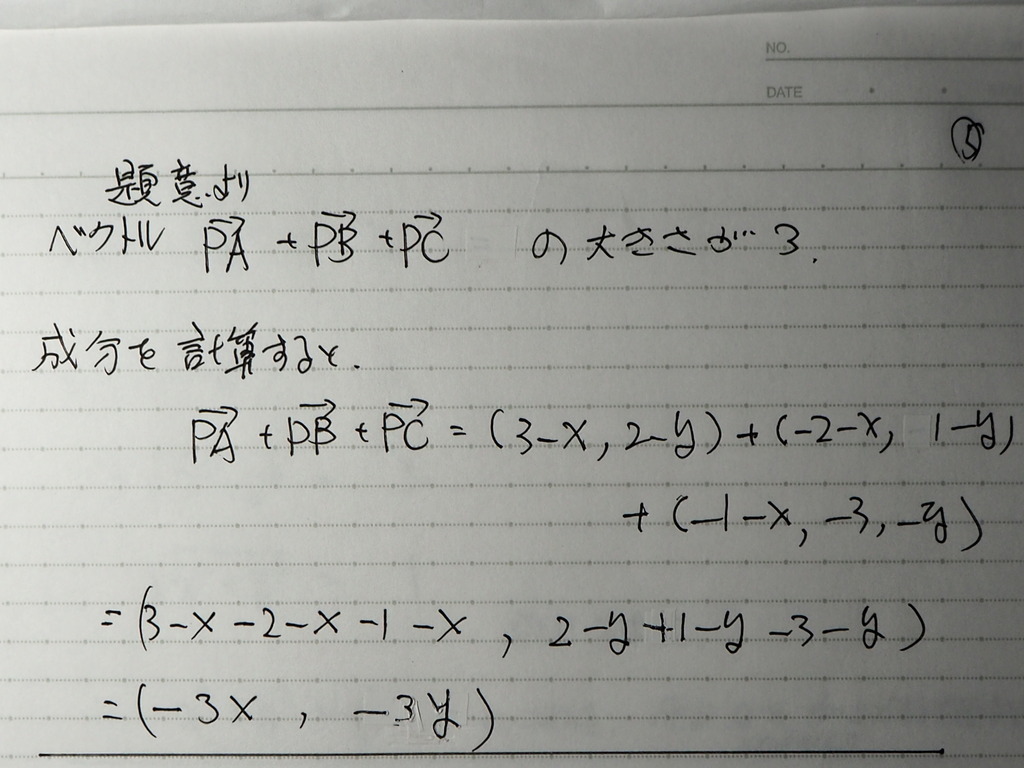 NO.
DATE
⑤
題意より
ベクトル PA→ + PB→ + PC→ の大きさが 3.
成分を計算すると.
PA→ + PB→ + PC→ = (3-x, 2-y) + (-2-x, 1-y)
+ (-1-x, -3, -y)
= (3-x-2-x-1-x, 2-y+1-y-3-y)
= (-3x, -3y)